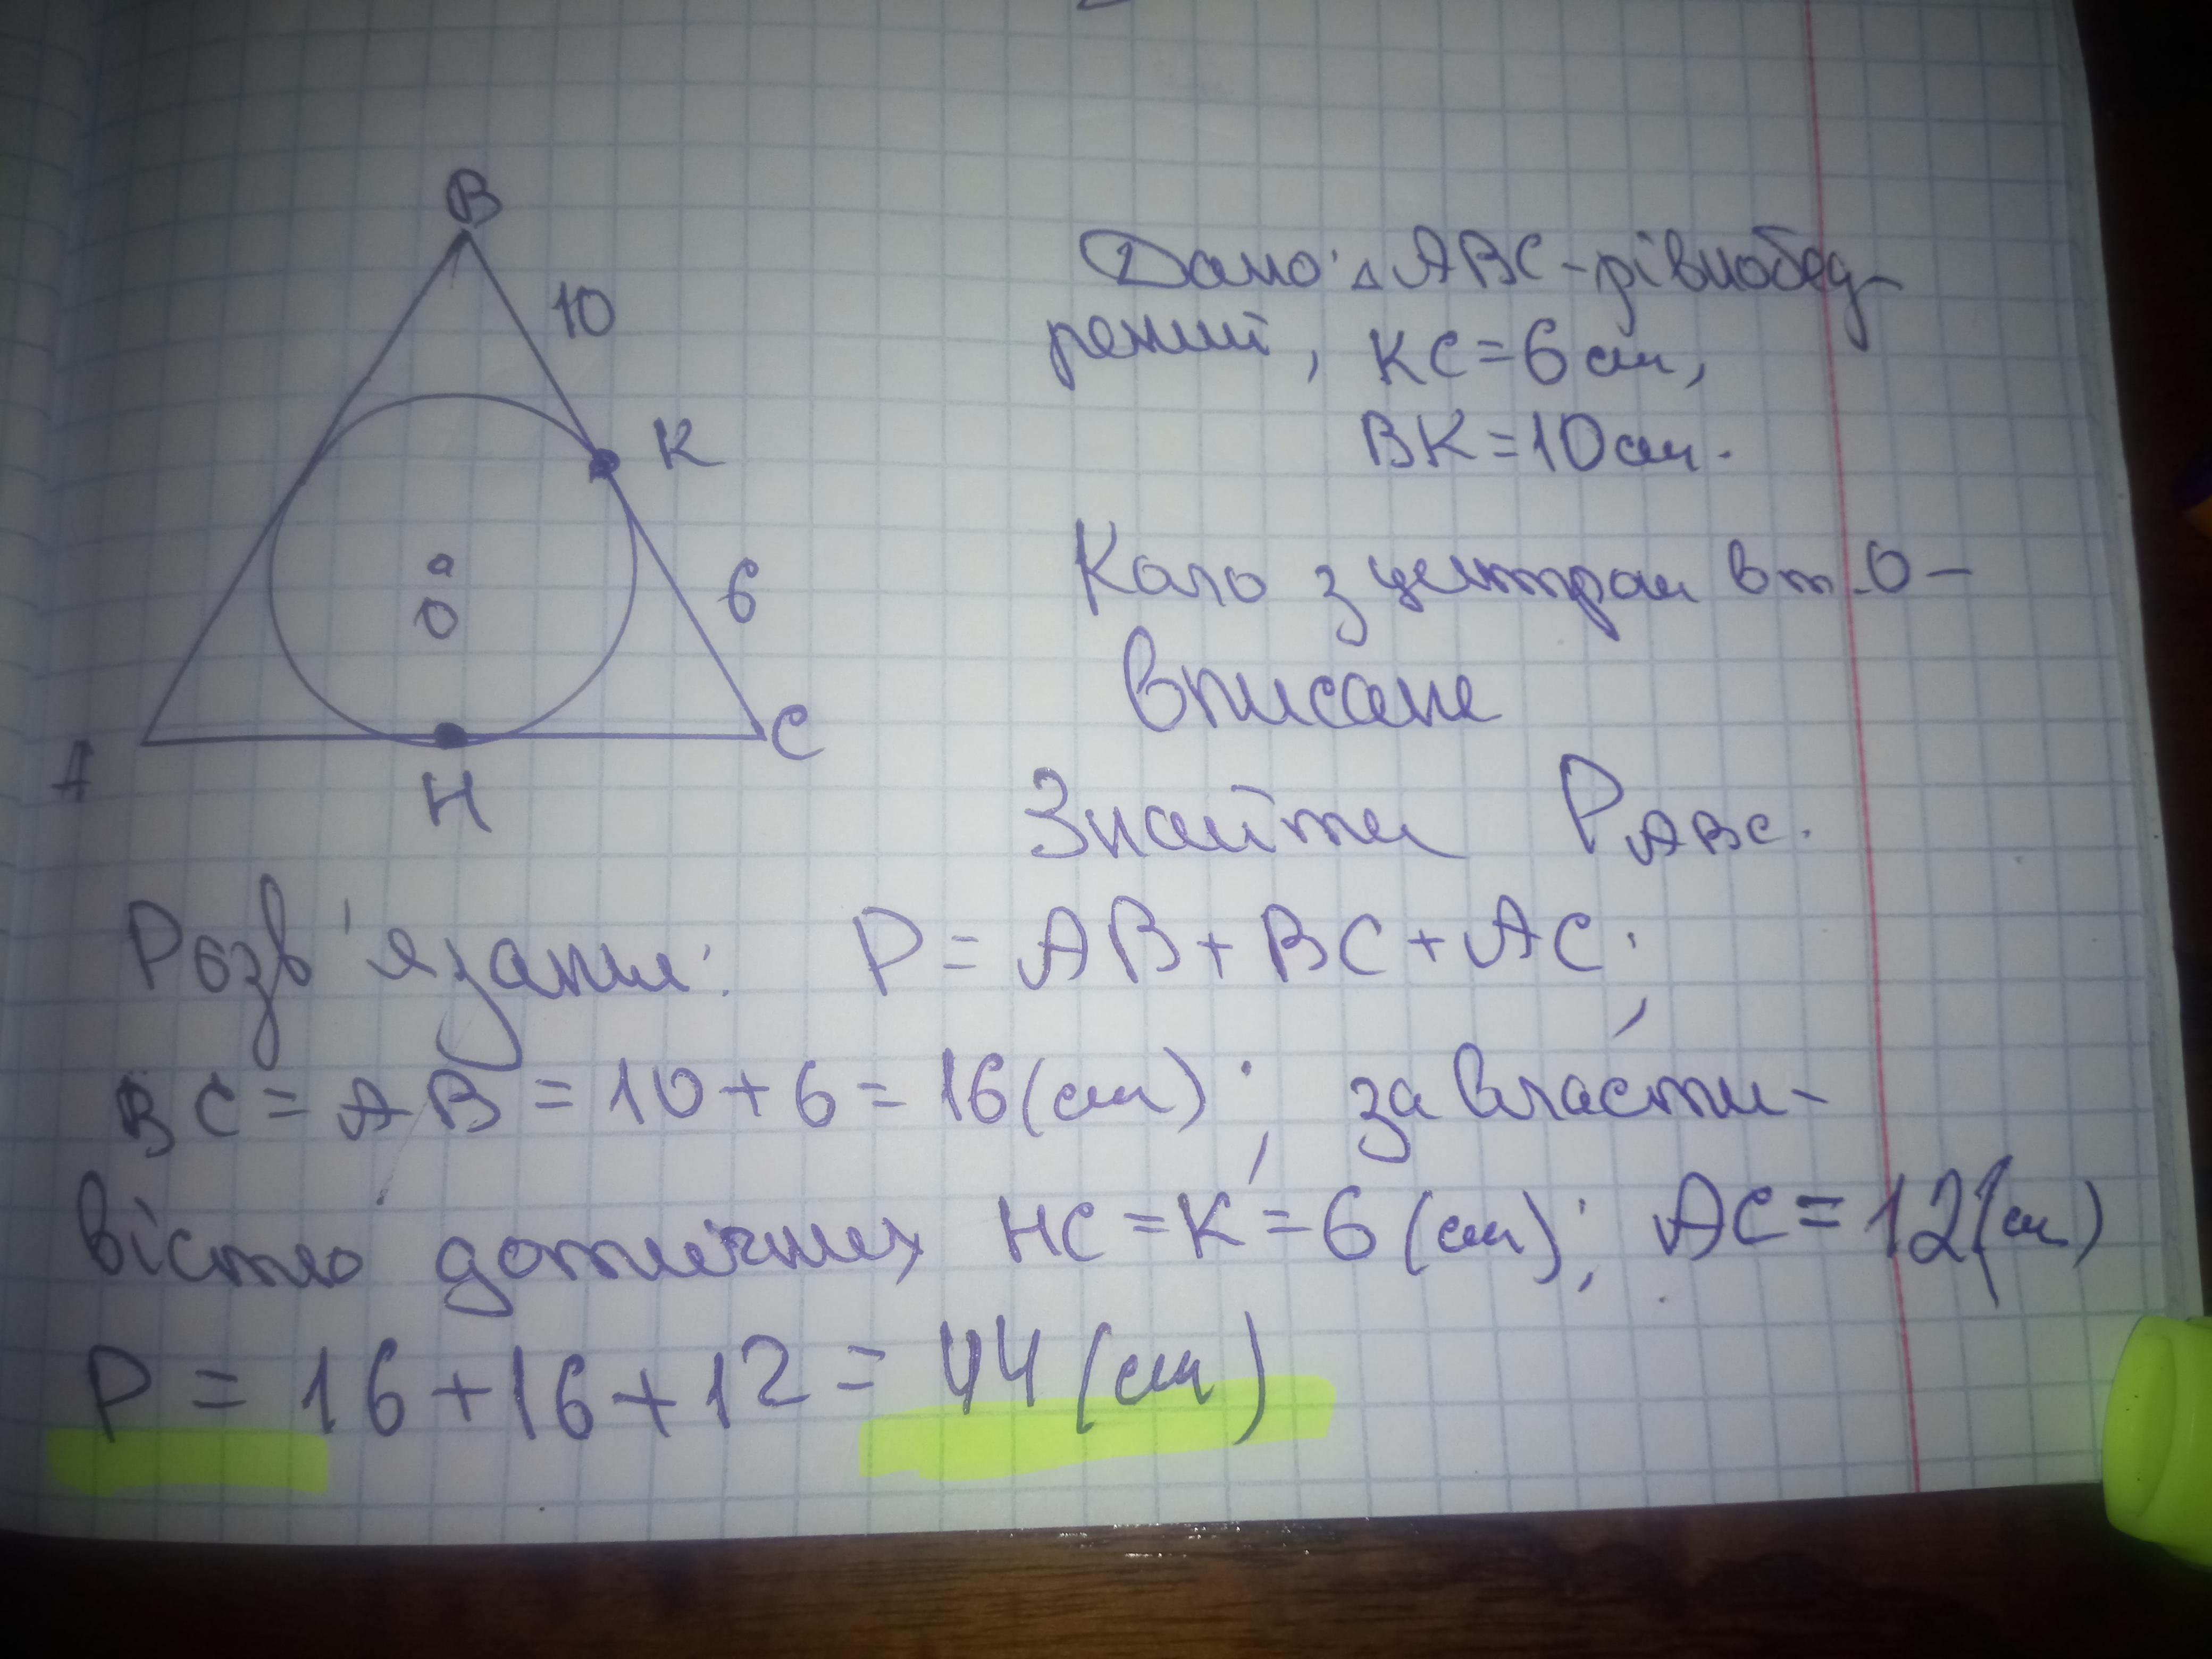 B
10
K
6
O
A
H
C
Дано: △ABC - рівнобед-
рений, KC = 6 см,
BK = 10 см.
Коло з центром в т. O -
вписане
Знайти P ABC.
Розв'язання: P = AB + BC + AC;
BC = AB = 10 + 6 = 16 (см); за власти-
вістю дотичних HC = K = 6 (см); AC = 12 (см)
P = 16 + 16 + 12 = 44 (см)